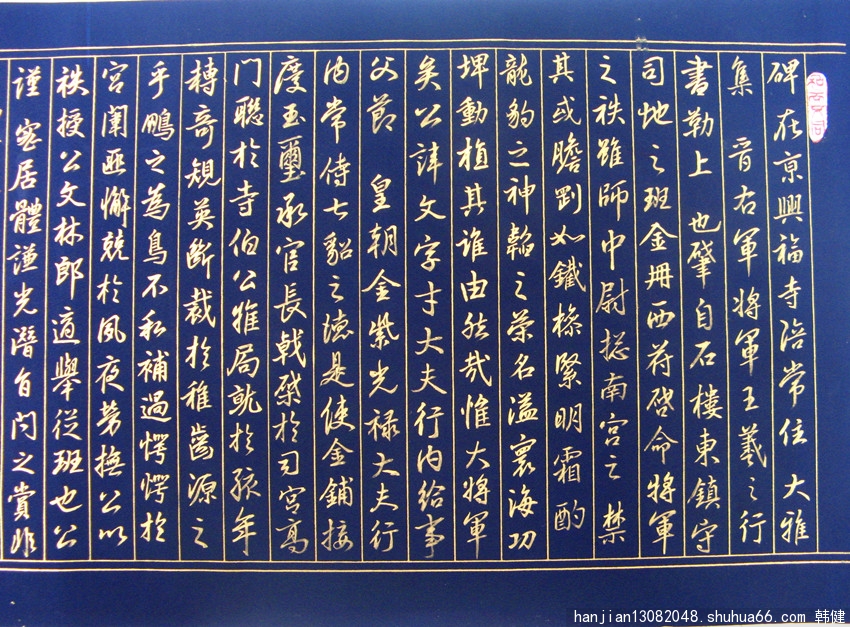 碑在京興福寺陪常住 大雅
集 晋右軍將軍王羲之行
書勒上 也肇自石樓東鎮守
司地之班金冊西符啓命將軍
之秩雖師中尉揔南宮之禁
其或膽劑如鐵橾緊明霜酌
龍豹之神韜之榮名溢寰海功
埤動植其誰由然哉惟大將軍
矣公諱文字才大夫行内給事
父節 皇朝金紫光禄大夫行
内常侍七貂之德是使金鋪接
度玉璽承官長戟榮於司宮高
門聯於寺伯公推局於孩年
轉奇規英斷裁於稚齒源之
乎鵬之為鳥不私補過愕愕於
宮闈匪懈兢於夙夜勞撫公以
秩授公文林郎適舉從班也公
謹密居體謹光潛自門之賞非
hanjian13082048.shuhua66.com 韩健